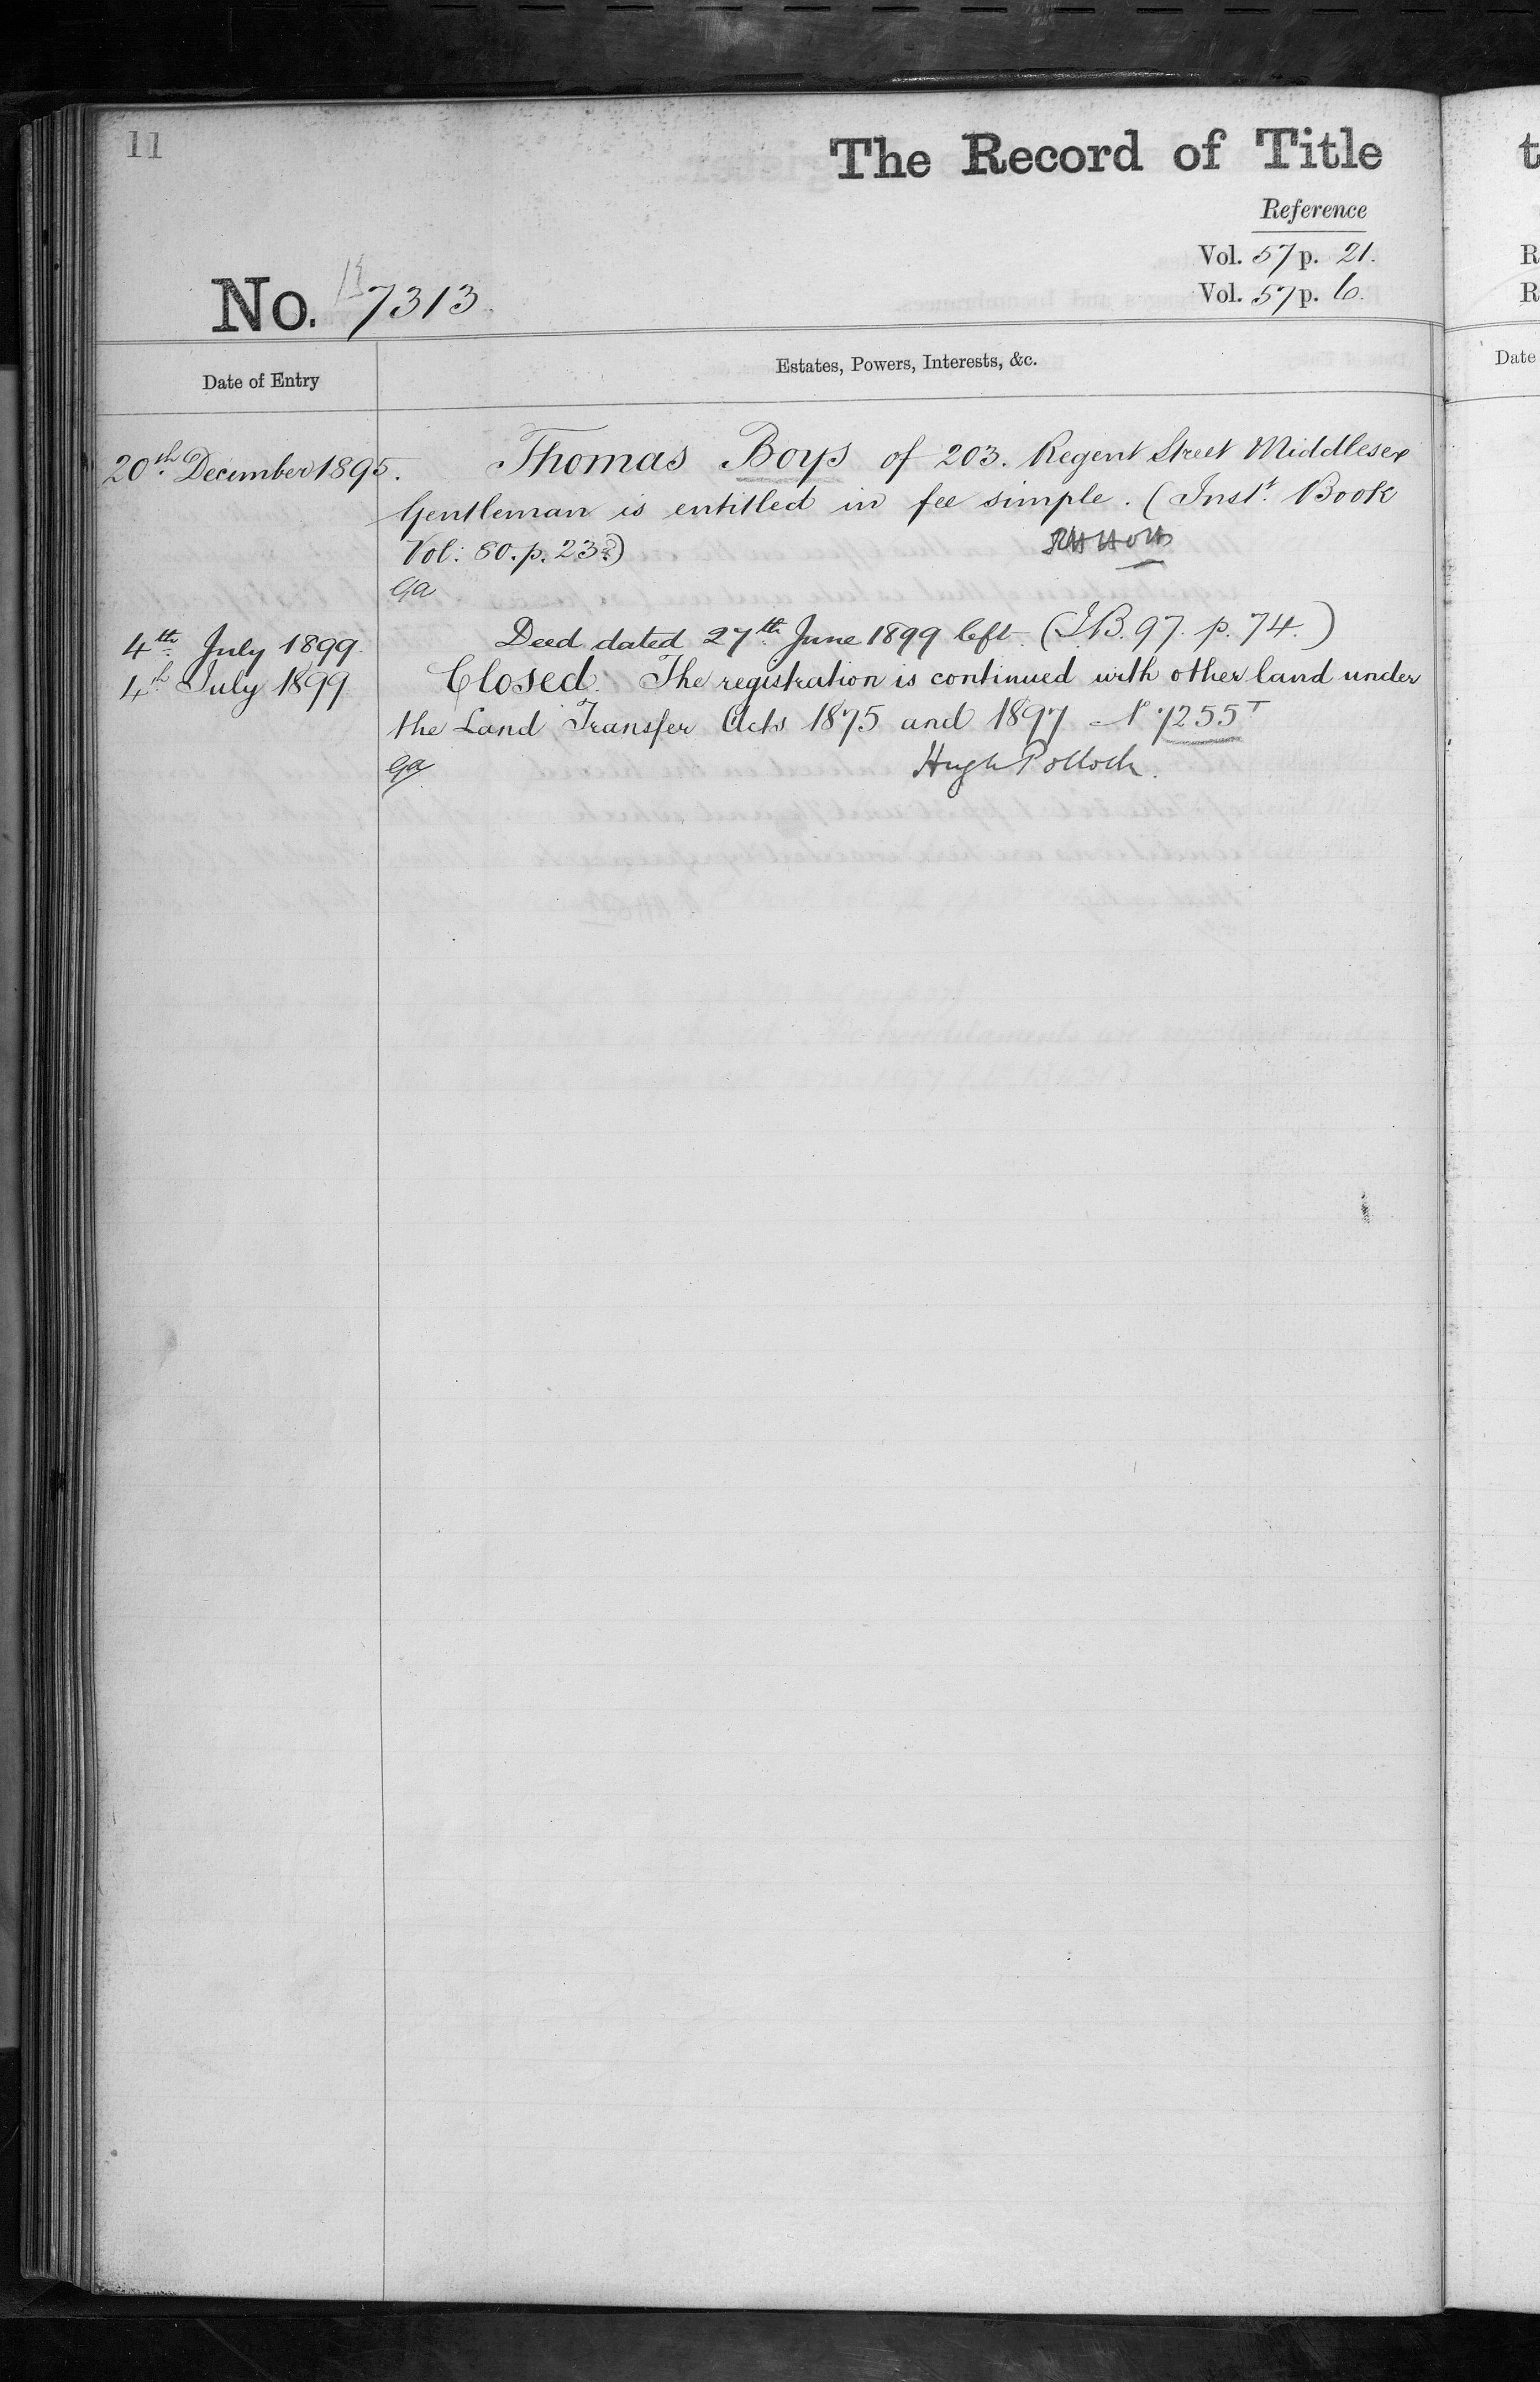 11
The Record of Title
Reference
Vol. 57 p. 21.
Vol. 57 p. 6.
No. 7313
Date of Entry
Estates, Powers, Interests, &c.
20th December 1895. Thomas Boys of 203. Regent Street Middlesex
Gentleman is entitled in fee simple. (Inst. Book
Vol: 80. p. 23
Ga
4th July 1899. Deed dated 27th June 1899 left (I.B. 97. p. 74.)
4th July 1899 Closed. The registration is continued with other land under
the Land Transfer Acts 1875 and 1897 No 7255T
Ga Hugh Pollock.
t
R
R
Date